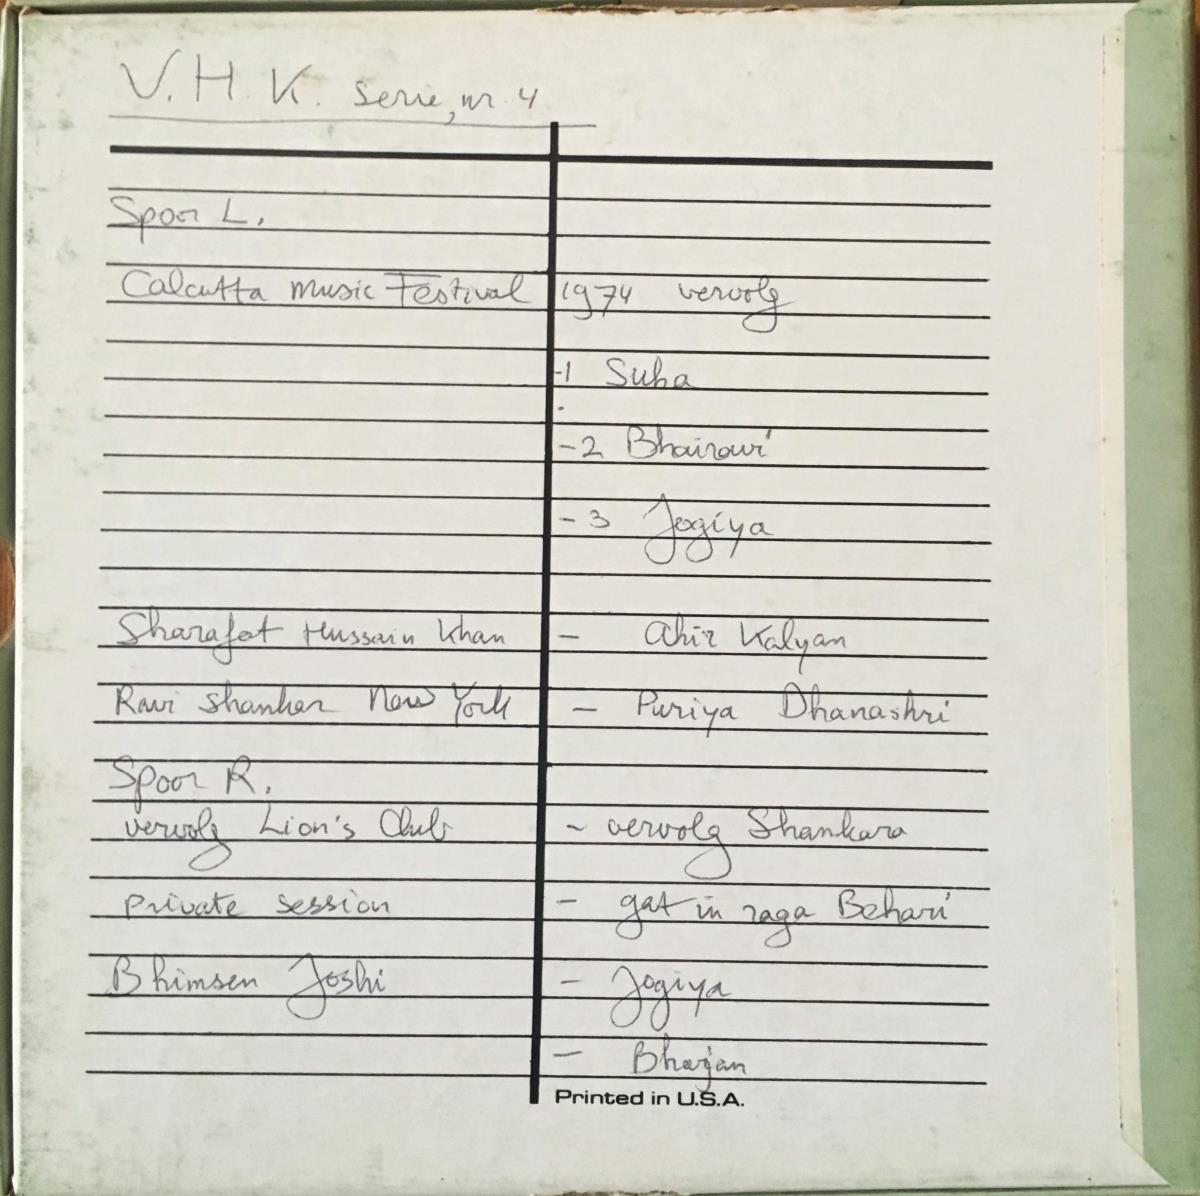 V.H.K. serie, nr. 4
Spoor L.
Calcutta music Festival 1974 vervolg
-1 Suha
-2 Bhairavi
-3 Jogiya
Sharafat Hussain Khan - Ahir Kalyan
Ravi Shankar New York - Puriya Dhanashri
Spoor R.
vervolg Lion's Club - vervolg Shankara
private session - gat in raga Behari
Bhimsen Joshi - Jogiya
- Bhajan
Printed in U.S.A.